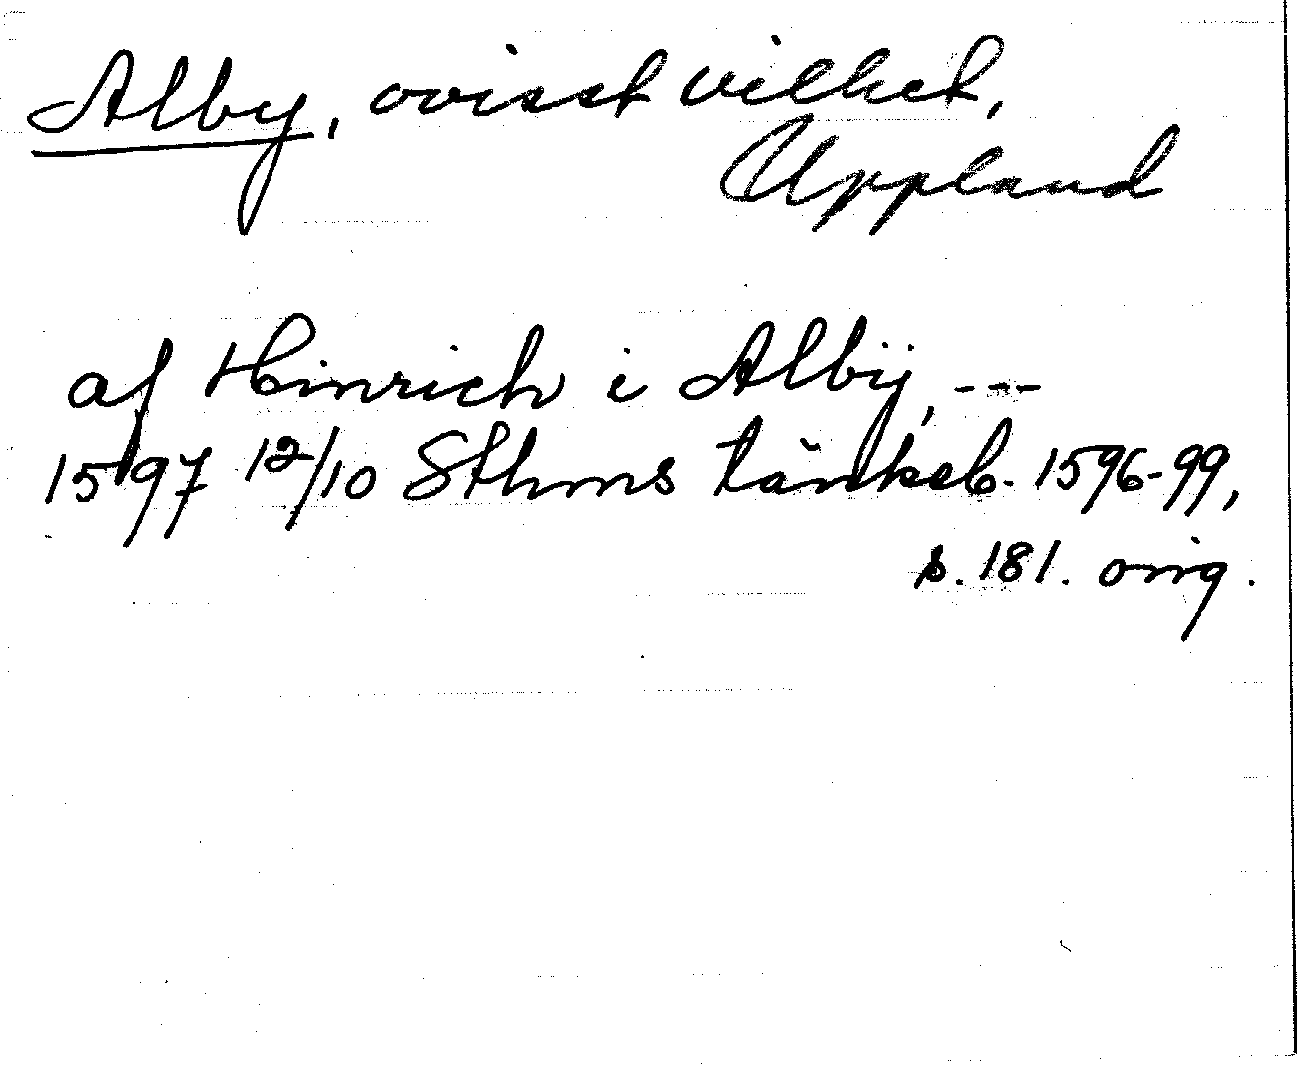 Alby, ovisst vilket,
Uppland
af Hinrich i Albÿ, ---
1597 12/10 Sthms tänkeb. 1596-99,
s. 181. orig.